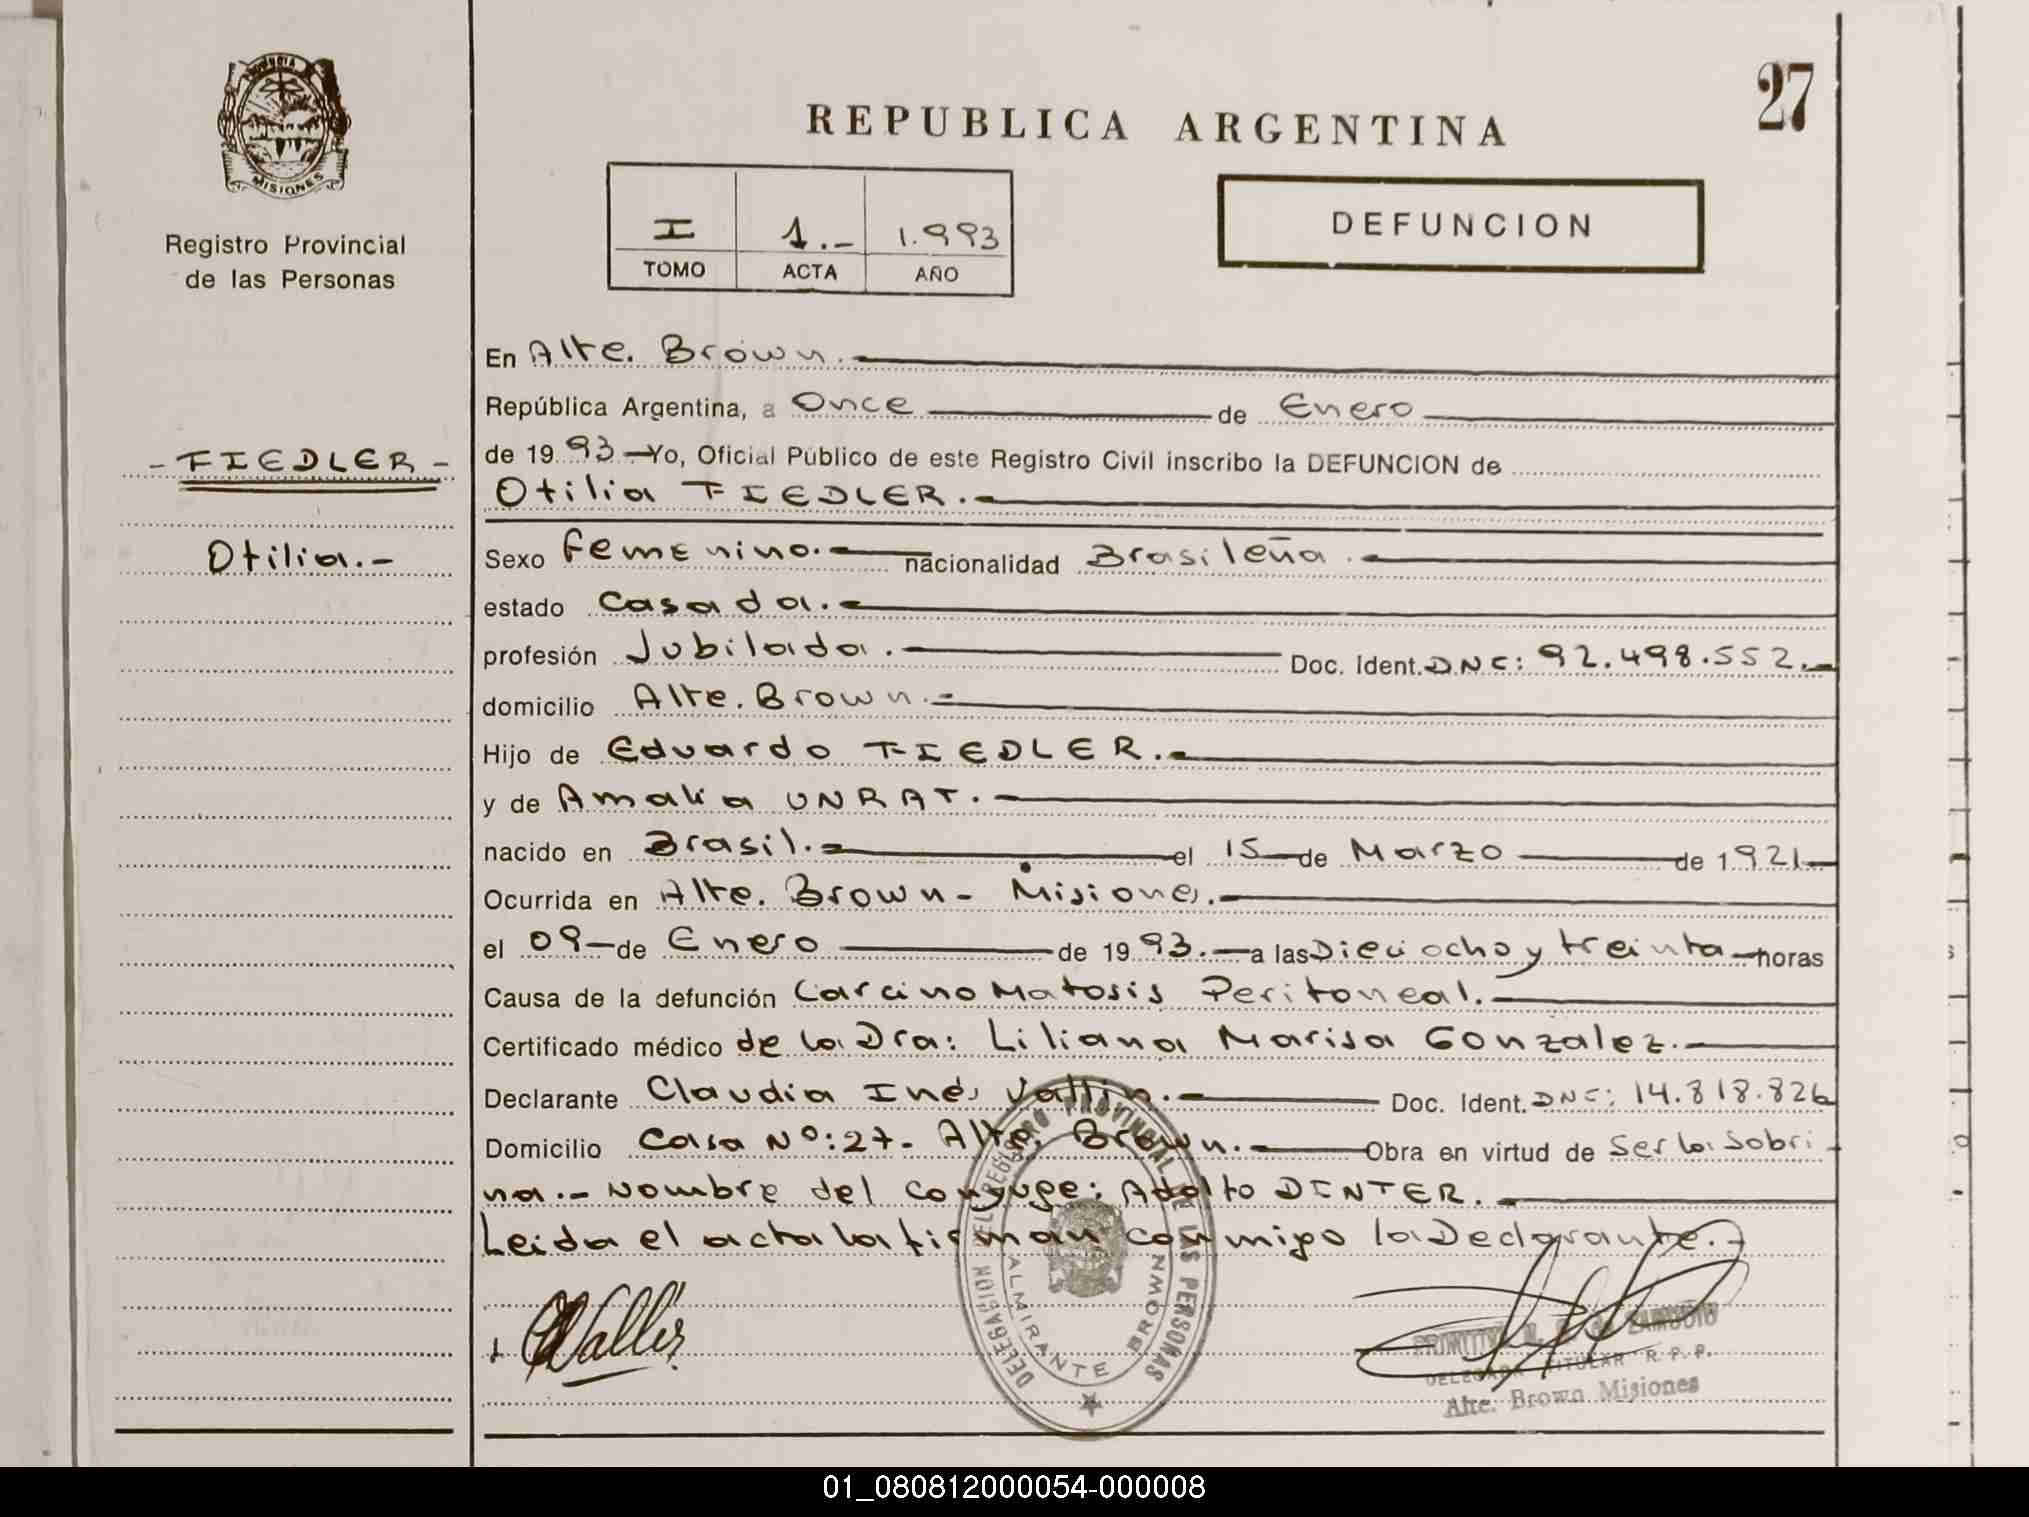 27
REPUBLICA ARGENTINA
MISIONES
Registro Provincial
de las Personas
I 1.- 1.993
TOMO ACTA AÑO
DEFUNCION
- FIEDLER -
Otilia.-
En Alte. Brown.-
República Argentina, a Once de Enero
de 1993 Yo, Oficial Público de este Registro Civil inscribo la DEFUNCION de
Otilia FIEDLER.-
Sexo femenino.- nacionalidad Brasileña.-
estado casada.-
profesión Jubilada.- Doc. Ident. DNC: 92.498.552.-
domicilio Alte. Brown.-
Hijo de Eduardo FIEDLER.-
y de Amalia UNRAT.-
nacido en Brasil.- el 15 de Marzo de 1921
Ocurrida en Alte. Brown - Misiones.-
el 09 de Enero de 1993.- a las Dieciocho y treinta horas
Causa de la defunción Carcinomatosis Peritoneal.-
Certificado médico de la Dra: Liliana Marisa Gonzalez.-
Declarante Claudia Inés Vallin.- Doc. Ident. DNC: 14.818.826
Domicilio Casa Nº: 27- Alte. Brown.- Obra en virtud de ser la sobri-
na.- Nombre del conyuge: Adolfo DINTER.-
Leida el acta la firman conmigo la Declarante.-
DELEGACION DEL REGISTRO PROVINCIAL DE LAS PERSONAS
ALMIRANTE BROWN
DELEGADA TITULAR R. P. P.
Alte. Brown Misiones
01_080812000054-000008